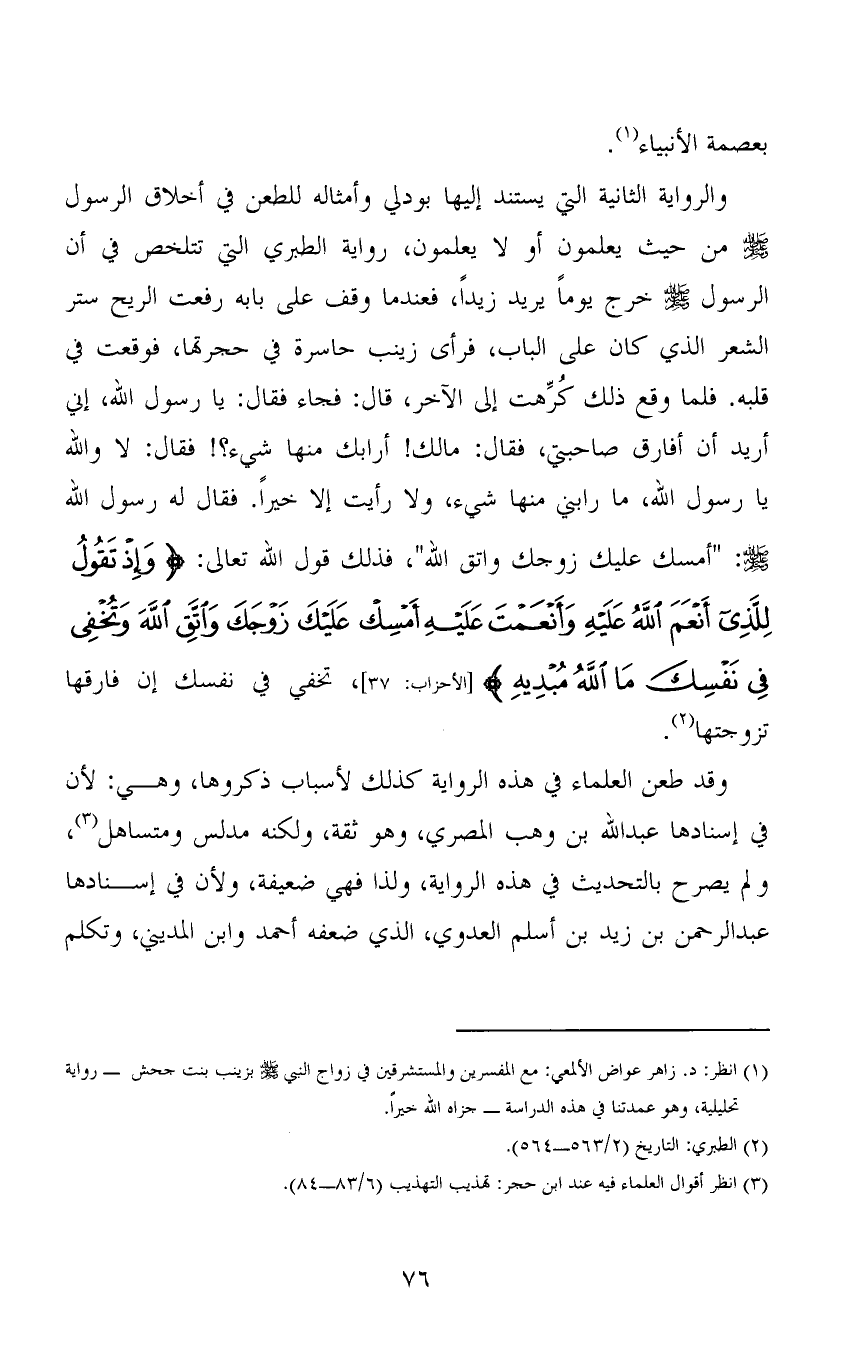 بعصمة الأنبياء(١).
والرواية الثانية التي يستند إليها بودلي وأمثاله للطعن في أخلاق الرسول
ﷺ من حيث يعلمون أو لا يعلمون، رواية الطبري التي تتلخص في أن
الرسول ﷺ خرج يوماً يريد زيداً، فعندما وقف على بابه رفعت الريح ستر
الشعر الذي كان على الباب، فرأى زينب حاسرة في حجرتها، فوقعت في
قلبه. فلما وقع ذلك كُرِّهت إلى الآخر، قال: فجاء فقال: يا رسول الله، إني
أريد أن أفارق صاحبتي، فقال: مالك! أرابك منها شيء؟! فقال: لا والله
يا رسول الله، ما رابني منها شيء، ولا رأيت إلا خيراً. فقال له رسول الله
ﷺ: "أمسك عليك زوجك واتق الله"، فذلك قول الله تعالى: ﴿ وَإِذْ تَقُولُ
لِلَّذِىٓ أَنْعَمَ ٱللَّهُ عَلَيْهِ وَأَنْعَمْتَ عَلَيْهِ أَمْسِكْ عَلَيْكَ زَوْجَكَ وَٱتَّقِ ٱللَّهَ وَتُخْفِى
فِى نَفْسِكَ مَا ٱللَّهُ مُبْدِيهِ ﴾ [الأحزاب: ٣٧]، تخفي في نفسك إن فارقها
تزوجتها(٢).
وقد طعن العلماء في هذه الرواية كذلك لأسباب ذكروها، وهـــي: لأن
في إسنادها عبدالله بن وهب المصري، وهو ثقة، ولكنه مدلس ومتساهل(٣)،
ولم يصرح بالتحديث في هذه الرواية، ولذا فهي ضعيفة، ولأن في إســنادها
عبدالرحمن بن زيد بن أسلم العدوي، الذي ضعفه أحمد وابن المديني، وتكلم
(١) انظر: د. زاهر عواض الألمعي: مع المفسرين والمستشرقين في زواج النبي ﷺ بزينب بنت جحش ــ رواية
تحليلية، وهو عمدتنا في هذه الدراسة ــ جزاه الله خيراً.
(٢) الطبري: التاريخ (٢/ ٥٦٣ــ٥٦٤).
(٣) انظر أقوال العلماء فيه عند ابن حجر: تهذيب التهذيب (٦/ ٨٣ــ٨٤).
٧٦